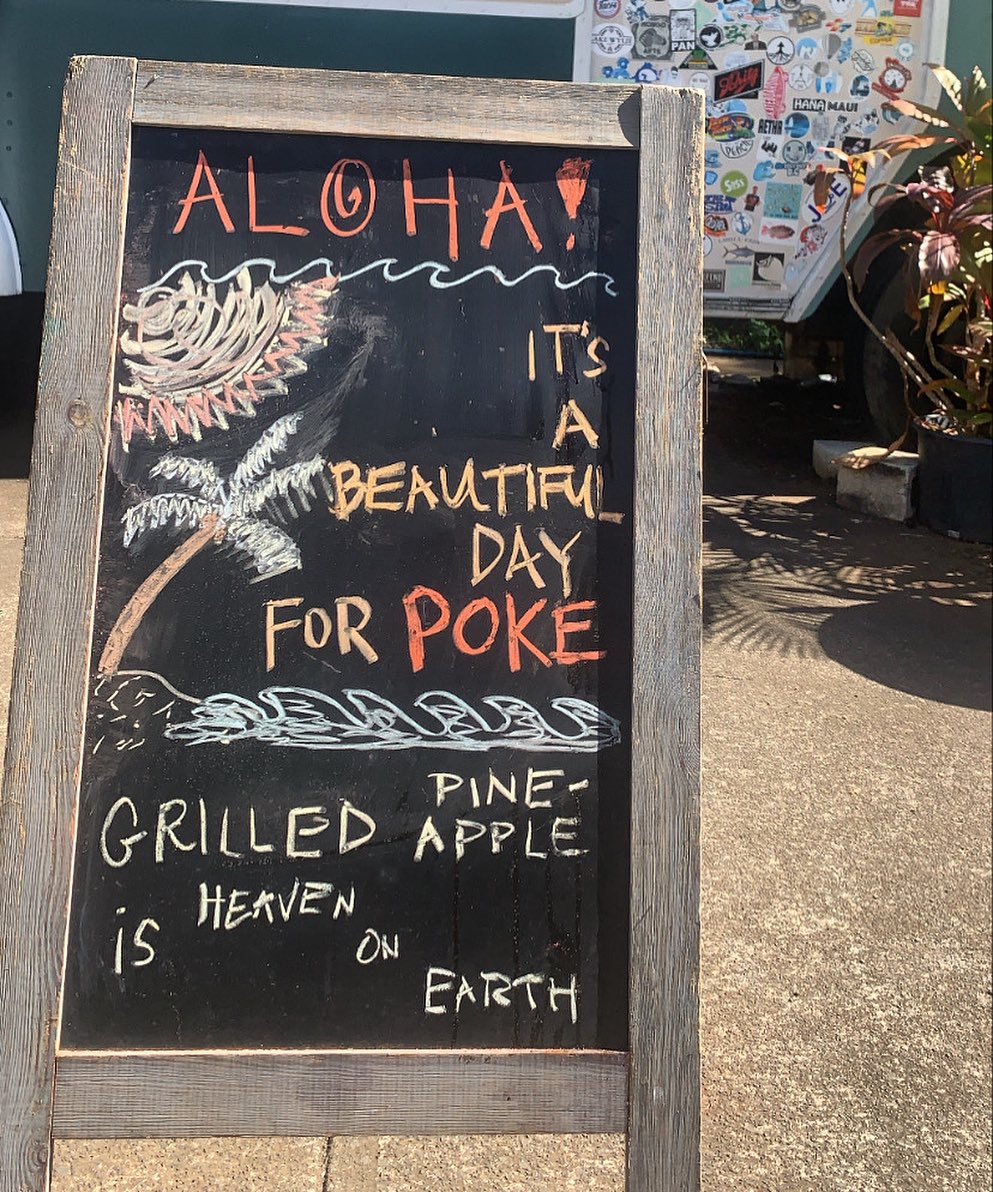 ALOHA!
IT'S
A
BEAUTIFUL
DAY
FOR POKE
PINE-
GRILLED APPLE
is HEAVEN
ON
EARTH
PAN
HANA MAUI
AETNA
SISI